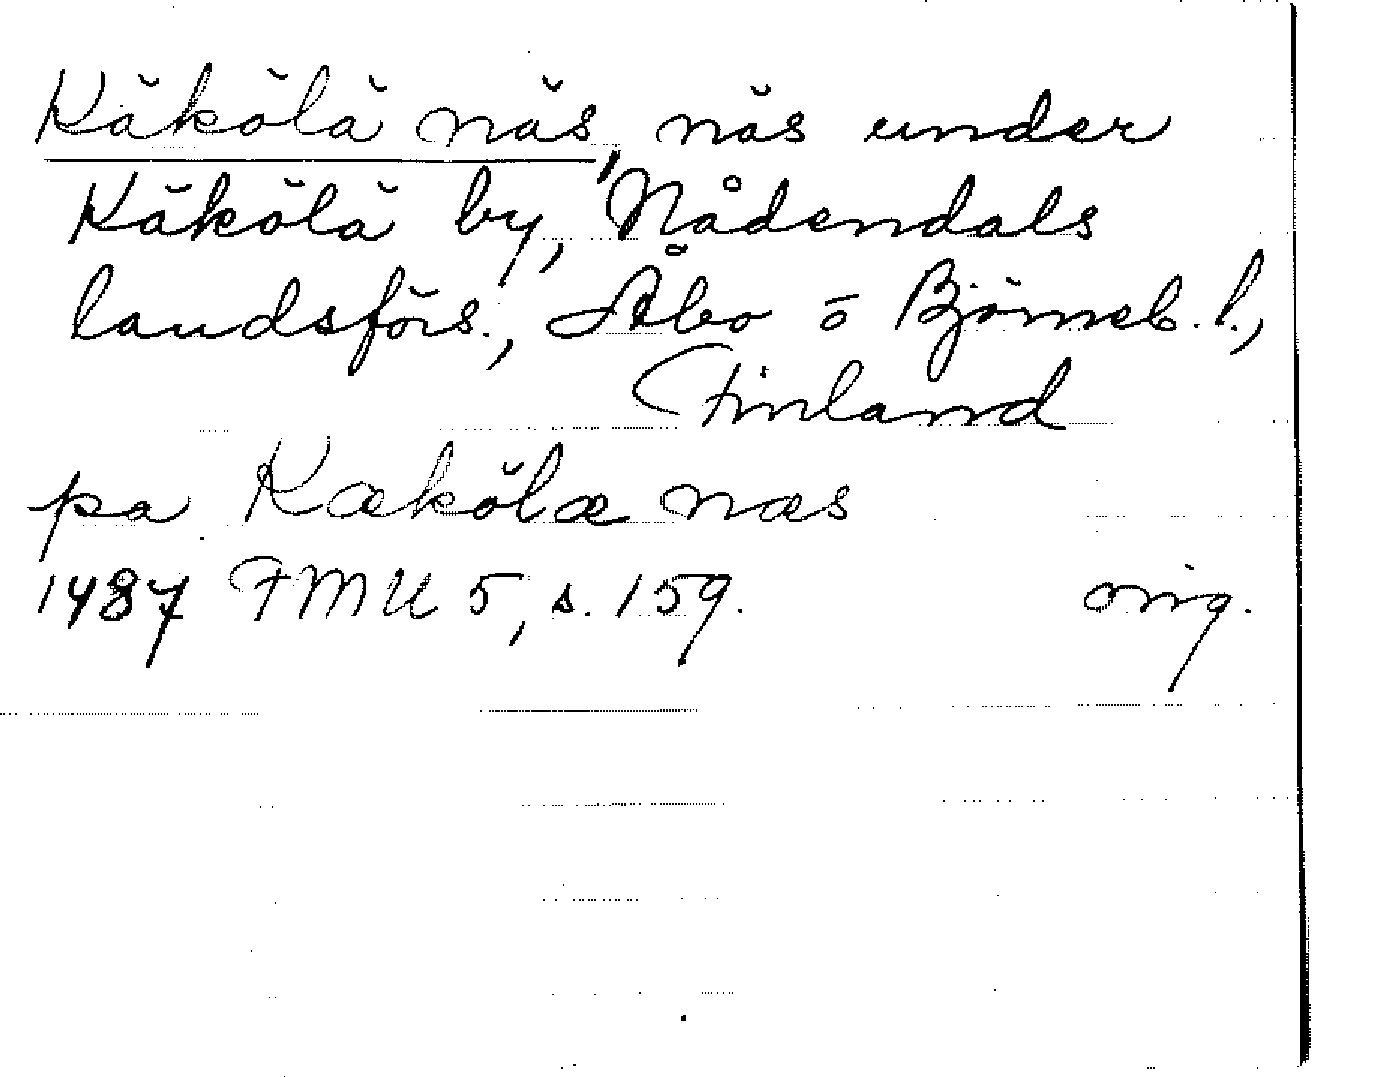 Käkölä näs, näs under
Käkölä by, Nådendals
landsförs., Åbo o Björneb. l.,
Finland
pa Kækölæ næs
1487 FMU 5, s. 159. orig.